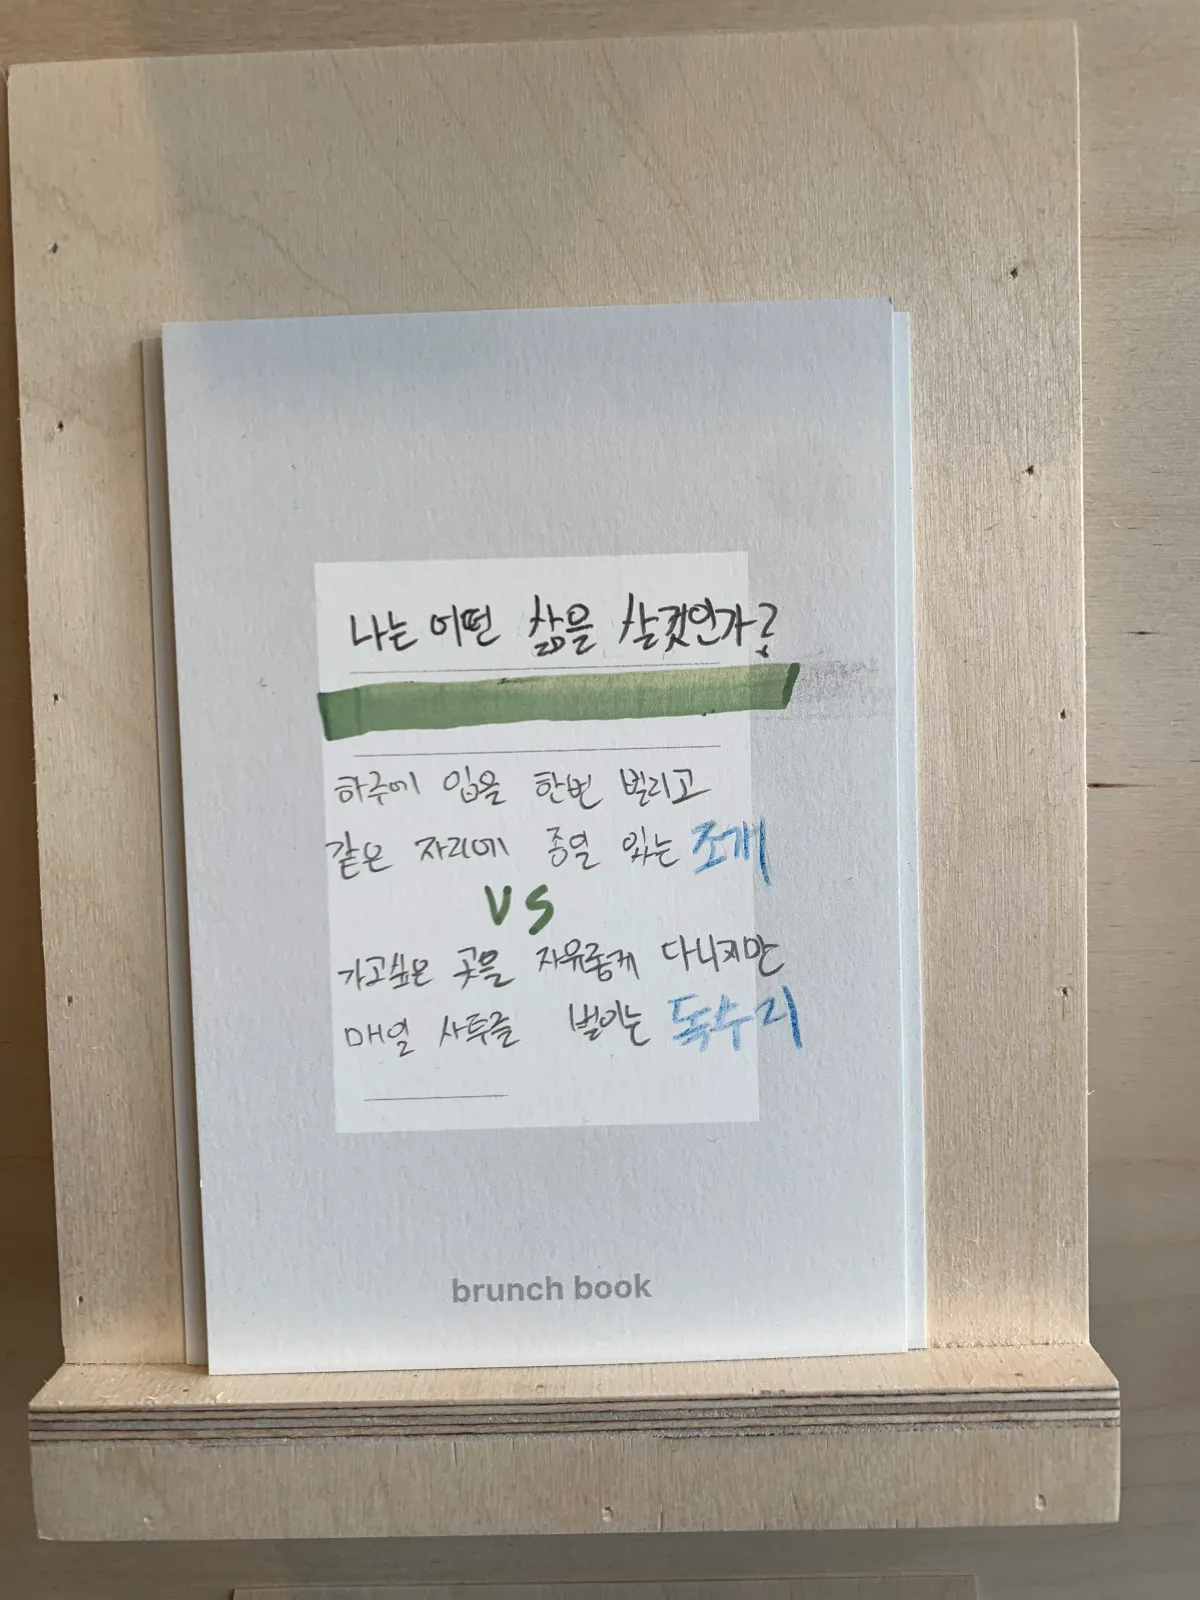 나는 어떤 삶을 살것인가?
하루에 입을 한번 벌리고
같은 자리에 종일 있는 조개
VS
가고싶은 곳을 자유롭게 다니지만
매일 사투를 벌이는 독수리
brunch book